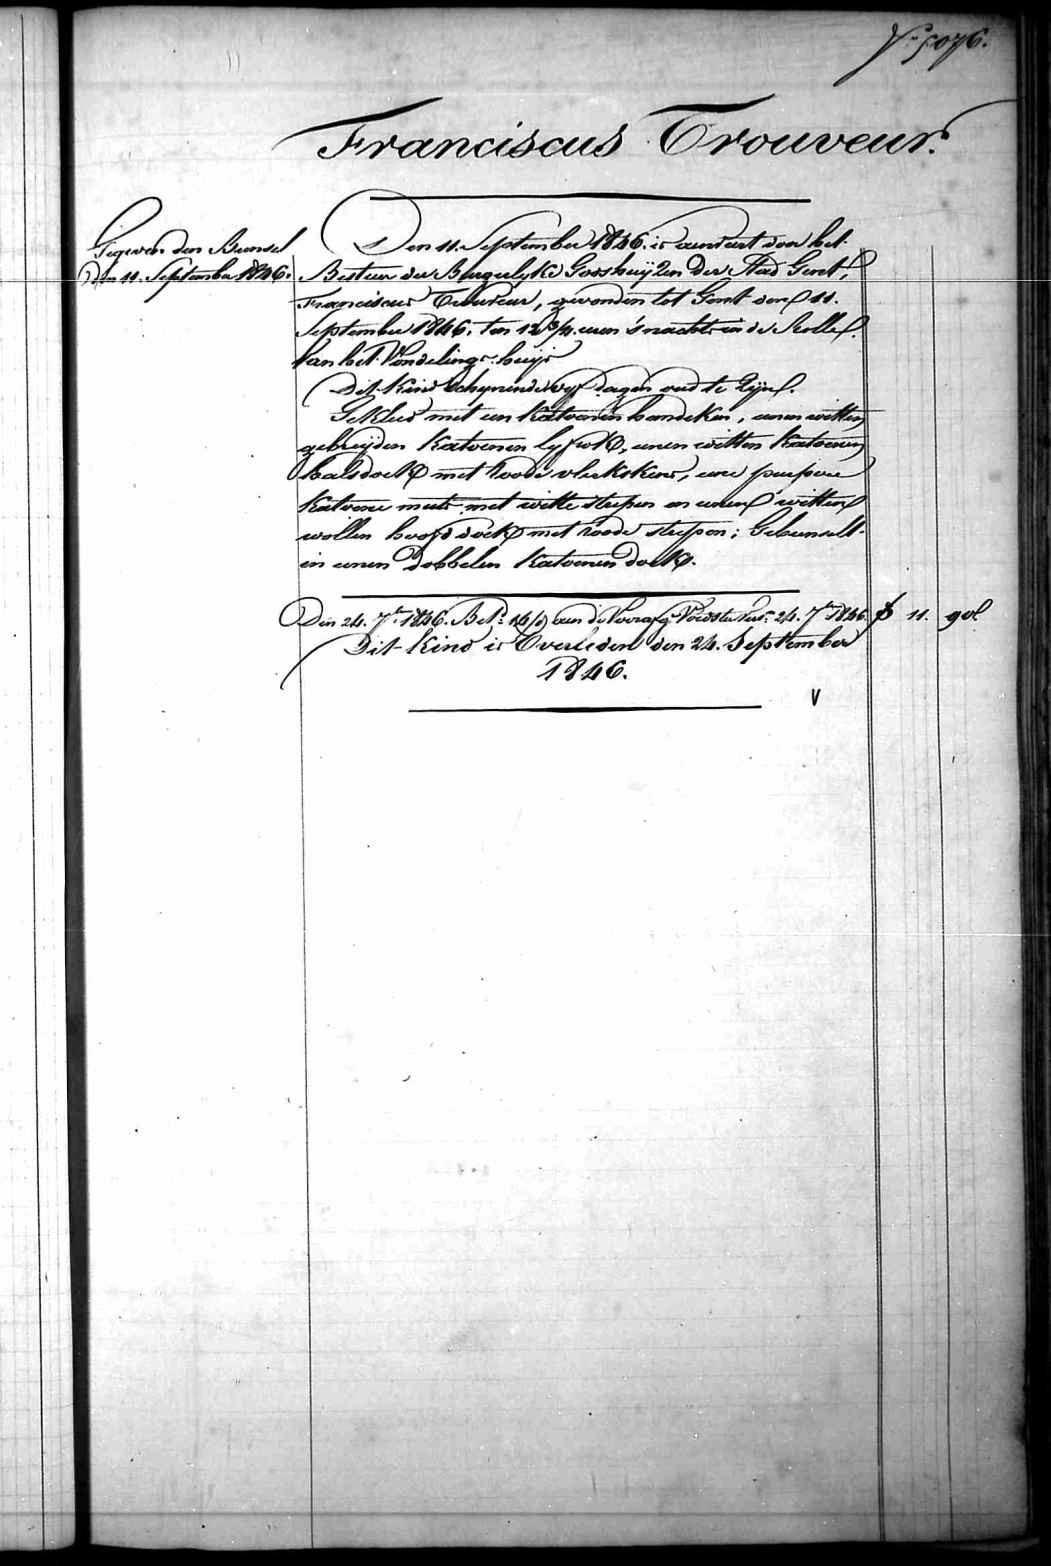 N.º 5076.
Franciscus Trouveur.
Gegeven den Bunsel
Den 11. September 1846.
Den 11. September 1846. is aenveirt door het
Bestuer der Burgerlyke Godshuyzen der Stad Gent,
Franciscus Trouveur, gevonden tot Gent den 11.
September 1846, ten 12 3/4 uren 's nachts in de Rolle
van het Vondelings-huys
Dit kind schynende vyf dagen oud te zyn.
Gekleed met een katoenen hemdeken, eenen witten
gebreyden katoenen lyfrok, eenen witten katoenen
halsdoek met roode vlekskens, eene purpere
katoene muts met witte streepen en eenen witten
wollen hoofddoek met roode streepen; Gebunselt
in eenen dobbelen katoenen doek.
Den 24. 7.bre 1846. Bet.d aen de Voedster 24. 7.bre 1846. 11. 90
Dit kind is Overleden den 24. September
1846.
V